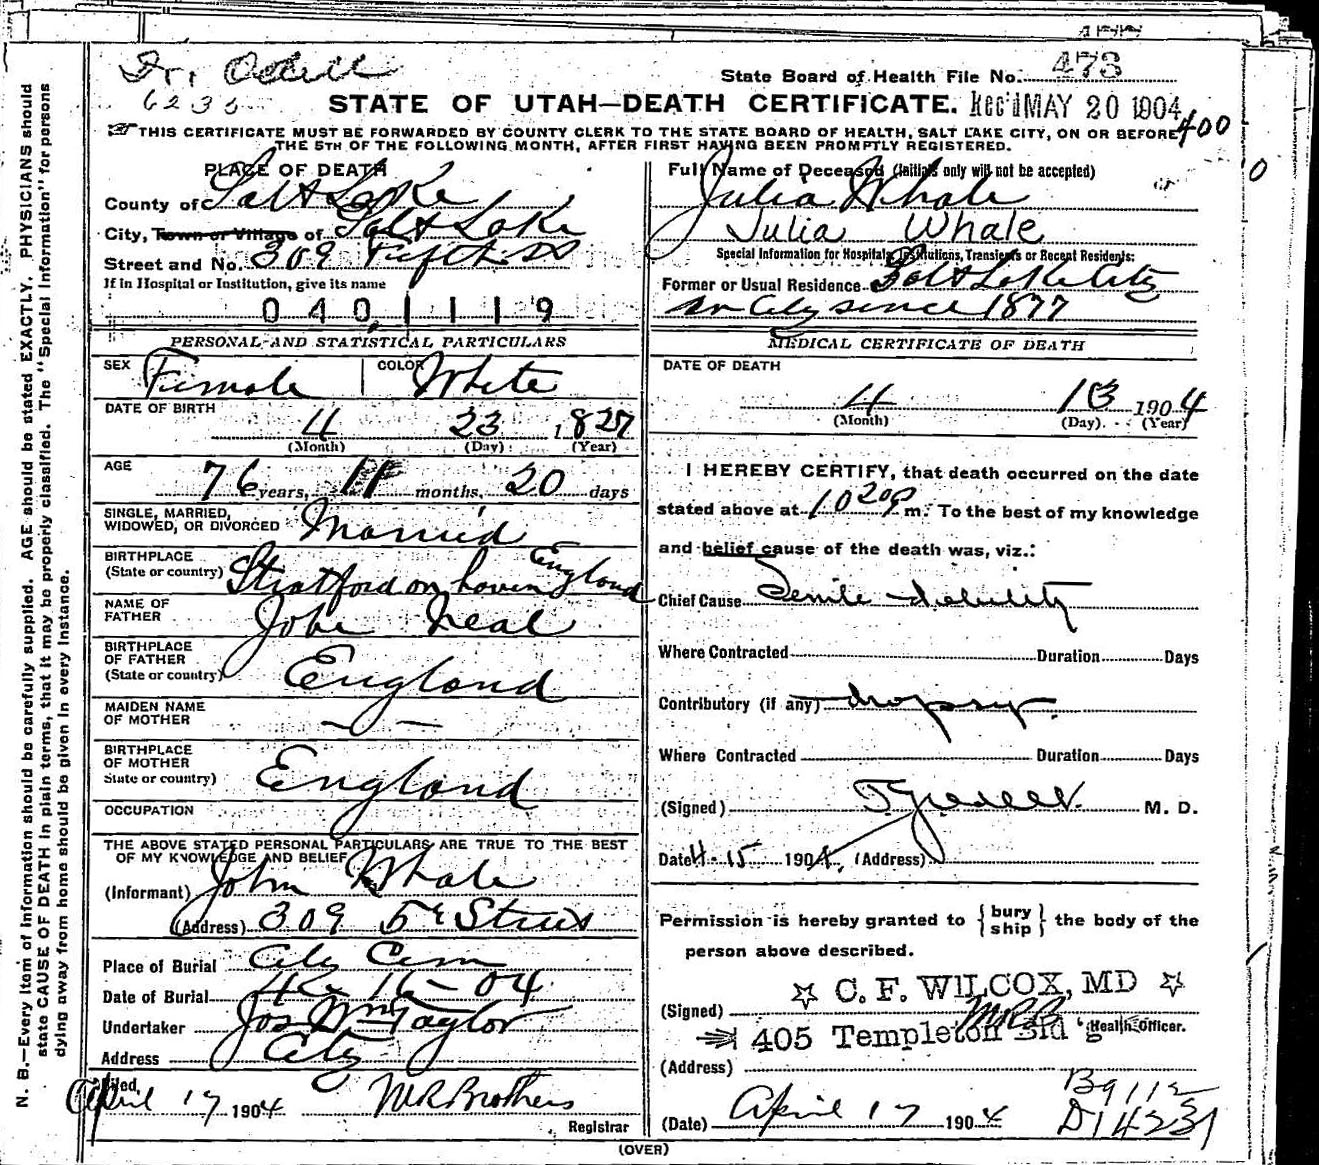 Dr. Odell
6235
State Board of Health File No. 473
STATE OF UTAH—DEATH CERTIFICATE. Rec'd MAY 20 1904
400
THIS CERTIFICATE MUST BE FORWARDED BY COUNTY CLERK TO THE STATE BOARD OF HEALTH, SALT LAKE CITY, ON OR BEFORE
THE 5TH OF THE FOLLOWING MONTH, AFTER FIRST HAVING BEEN PROMPTLY REGISTERED.
PLACE OF DEATH
County of Salt Lake
City, Town or Village of Salt Lake
Street and No. 309 Fifth
If in Hospital or Institution, give its name
0 4 0 1 1 1 9
PERSONAL AND STATISTICAL PARTICULARS
SEX Female COLOR White
DATE OF BIRTH
4 23 1827
(Month) (Day) (Year)
AGE
76 years, 11 months, 20 days
SINGLE, MARRIED,
WIDOWED, OR DIVORCED Married
BIRTHPLACE
(State or country) Stratford on England
NAME OF
FATHER John Neal
BIRTHPLACE
OF FATHER
(State or country) England
MAIDEN NAME
OF MOTHER — —
BIRTHPLACE
OF MOTHER
State or country) England
OCCUPATION
THE ABOVE STATED PERSONAL PARTICULARS ARE TRUE TO THE BEST
OF MY KNOWLEDGE AND BELIEF
(Informant) John Whale
(Address) 309 5th
Place of Burial City Cem
Date of Burial 16-04
Undertaker Jos Wm Taylor
Address City
Filed,
April 17 1904 M R Brothers
Registrar
Full Name of Deceased (Initials only will not be accepted)
Julia Whale
Julia Whale
Special Information for Hospitals, Institutions, Transients or Recent Residents:
Former or Usual Residence Salt Lake City
in City since 1877
MEDICAL CERTIFICATE OF DEATH
DATE OF DEATH
4 13 1904
(Month) (Day) (Year)
I HEREBY CERTIFY, that death occurred on the date
stated above at 10 20 P m. To the best of my knowledge
and belief cause of the death was, viz.:
Chief Cause Senile debility
Where Contracted Duration Days
Contributory (if any) dropsy.
Where Contracted Duration Days
(Signed) M. D.
Date 4-15 1904, (Address)
Permission is hereby granted to { bury
ship } the body of the
person above described.
☆ C. F. WILCOX, MD ☆
(Signed)
405 Templeton Bld'g Health Officer.
(Address)
B9112
(Date) April 17 1904
(OVER)
N. B.—Every item of information should be carefully supplied. AGE should be stated EXACTLY. PHYSICIANS should
state CAUSE OF DEATH in plain terms, that it may be properly classified. The "Special Information" for persons
dying away from home should be given in every instance.